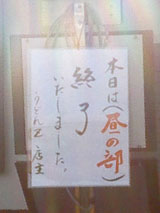 本日は(昼の部)
終了
いたしました。
うどん工 店主